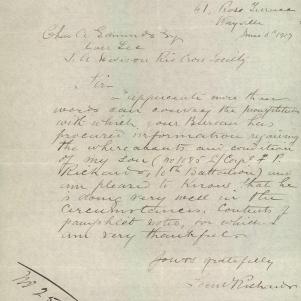 61, Rose Terrace
Wayville
June 8th 1917
Chas A Edmunds Esq
Hon Sec
S. A Division Red Cross Society
Sir -
I appreciate more than
words can convey the promptitude
with which your Bureau has
procured information regarding
the whereabouts and condition
of my son (No 1185 L/Cop'l F P.
Richards, 10th Battalion) and
am pleased to know that he
is doing very well in the
circumstances. Contents of
pamphlet noted, for which
I am very thankful.
Yours gratefully
Richards